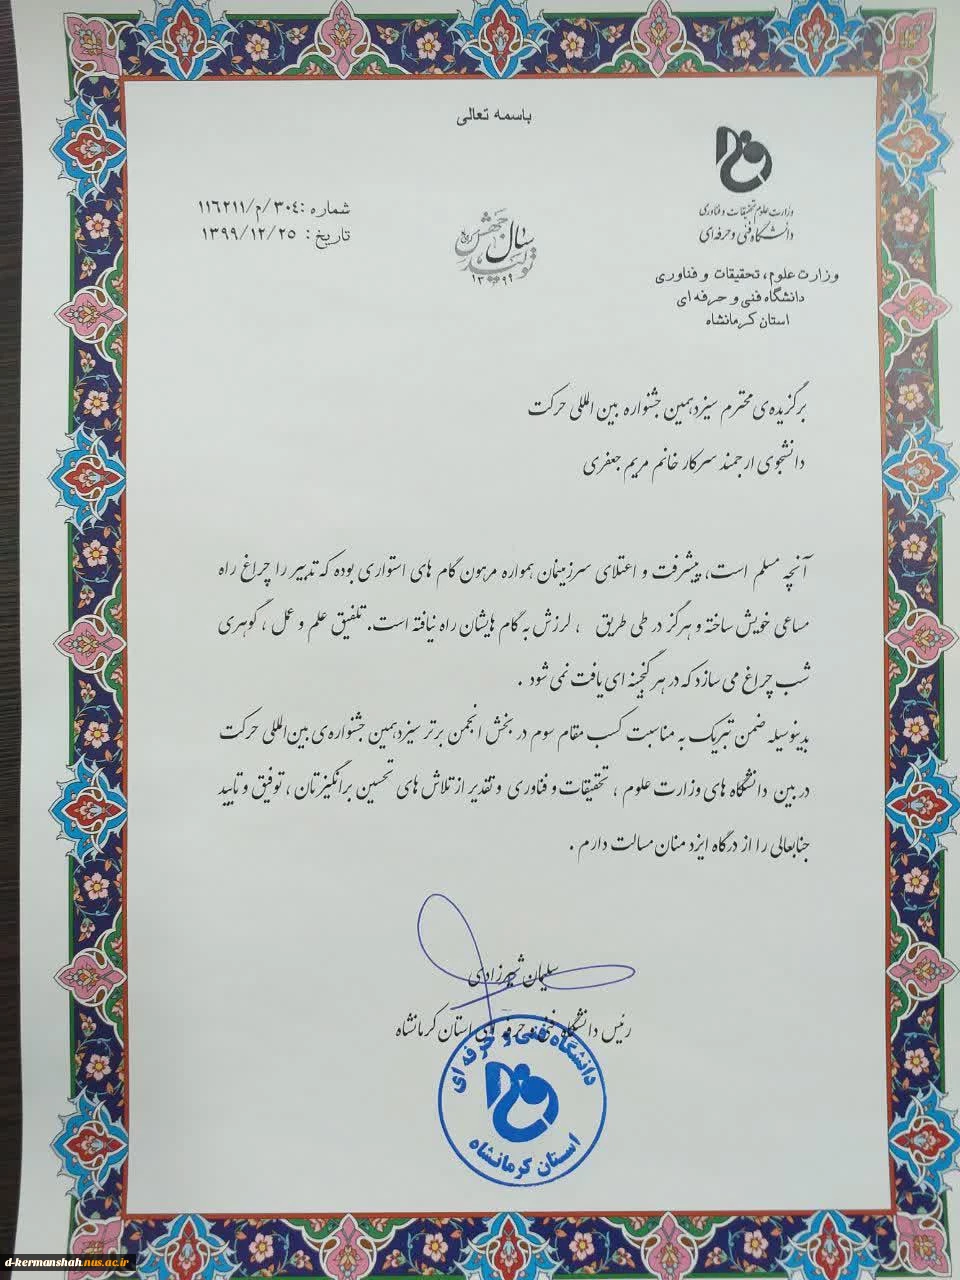 باسمه تعالی
وزارت علوم تحقیقات و فناوری
دانشگاه فنی و حرفه‌ای
شماره :۳۰۴/م/۱۱۶۲۱۱
تاریخ : ۱۳۹۹/۱۲/۲۵
سال جهش تولید
۱۳۹۹
وزارت علوم، تحقیقات و فناوری
دانشگاه فنی و حرفه ای
استان کرمانشاه
برگزیده‌ی محترم سیزدهمین جشنواره بین المللی حرکت
دانشجوی ارجمند سرکار خانم مریم جعفری
آنچه مسلم است، پیشرفت و اعتلای سرزمینمان همواره مرهون گام های استواری بوده که تدبیر را چراغ راه
مساعی خویش ساخته و هرگز در طی طریق ، لرزش به گام هایشان راه نیافته است. تلفیق علم و عمل ، گوهری
شب چراغ می سازد که در هر گنجینه ای یافت نمی شود .
بدینوسیله ضمن تبریک به مناسبت کسب مقام سوم در بخش انجمن برتر سیزدهمین جشنواره‌ی بین‌المللی حرکت
در بین دانشگاه های وزارت علوم ، تحقیقات و فناوری و تقدیر از تلاش های تحسین برانگیزتان ، توفیق و تایید
جنابعالی را از درگاه ایزد منان مسالت دارم .
سلیمان شهرزادی
رئیس دانشگاه فنی و حرفه ای استان کرمانشاه
دانشگاه فنی و حرفه ای
استان کرمانشاه
d-kermanshah.nus.ac.ir